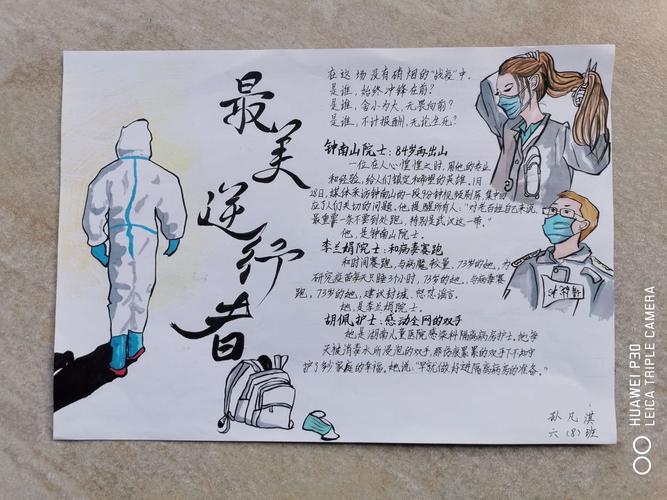 最美逆行者
在这场没有硝烟的"战疫"中,
是谁,始终冲锋在前?
是谁,舍小为大,无畏向前?
是谁,不计报酬,无论生死?
钟南山院士:84岁再出山
一位在人心惶惶之时,用他的专业
和经验,给人们镇定和希望的英雄,1月
28日,媒体采访钟南山的一段9分钟视频刷屏,集中回
应了人们关切的问题,他提醒所有人:"对老百姓自己来说,
最重要一条不要到处跑,特别是武汉这一带。"
他,是钟南山院士。
李兰娟院士:和病毒赛跑
和时间赛跑,与病魔较量,73岁的她,为
研究疫苗每天只睡3小时,73岁的她,与病毒赛
跑,73岁的她,建议封城,怒怼谣言。
她,是李兰娟院士。
胡佩护士:感动全网的双手
她是湖南儿童医院感染科隔离病房护士。她每
天被消毒水所浸泡的双手,那伤痕累累的双手下不知守
护了多少家庭的幸福。她说:"早就做好进隔离病房的准备。"
孙凡淇
六(8)班
HUAWEI P30
LEICA TRIPLE CAMERA